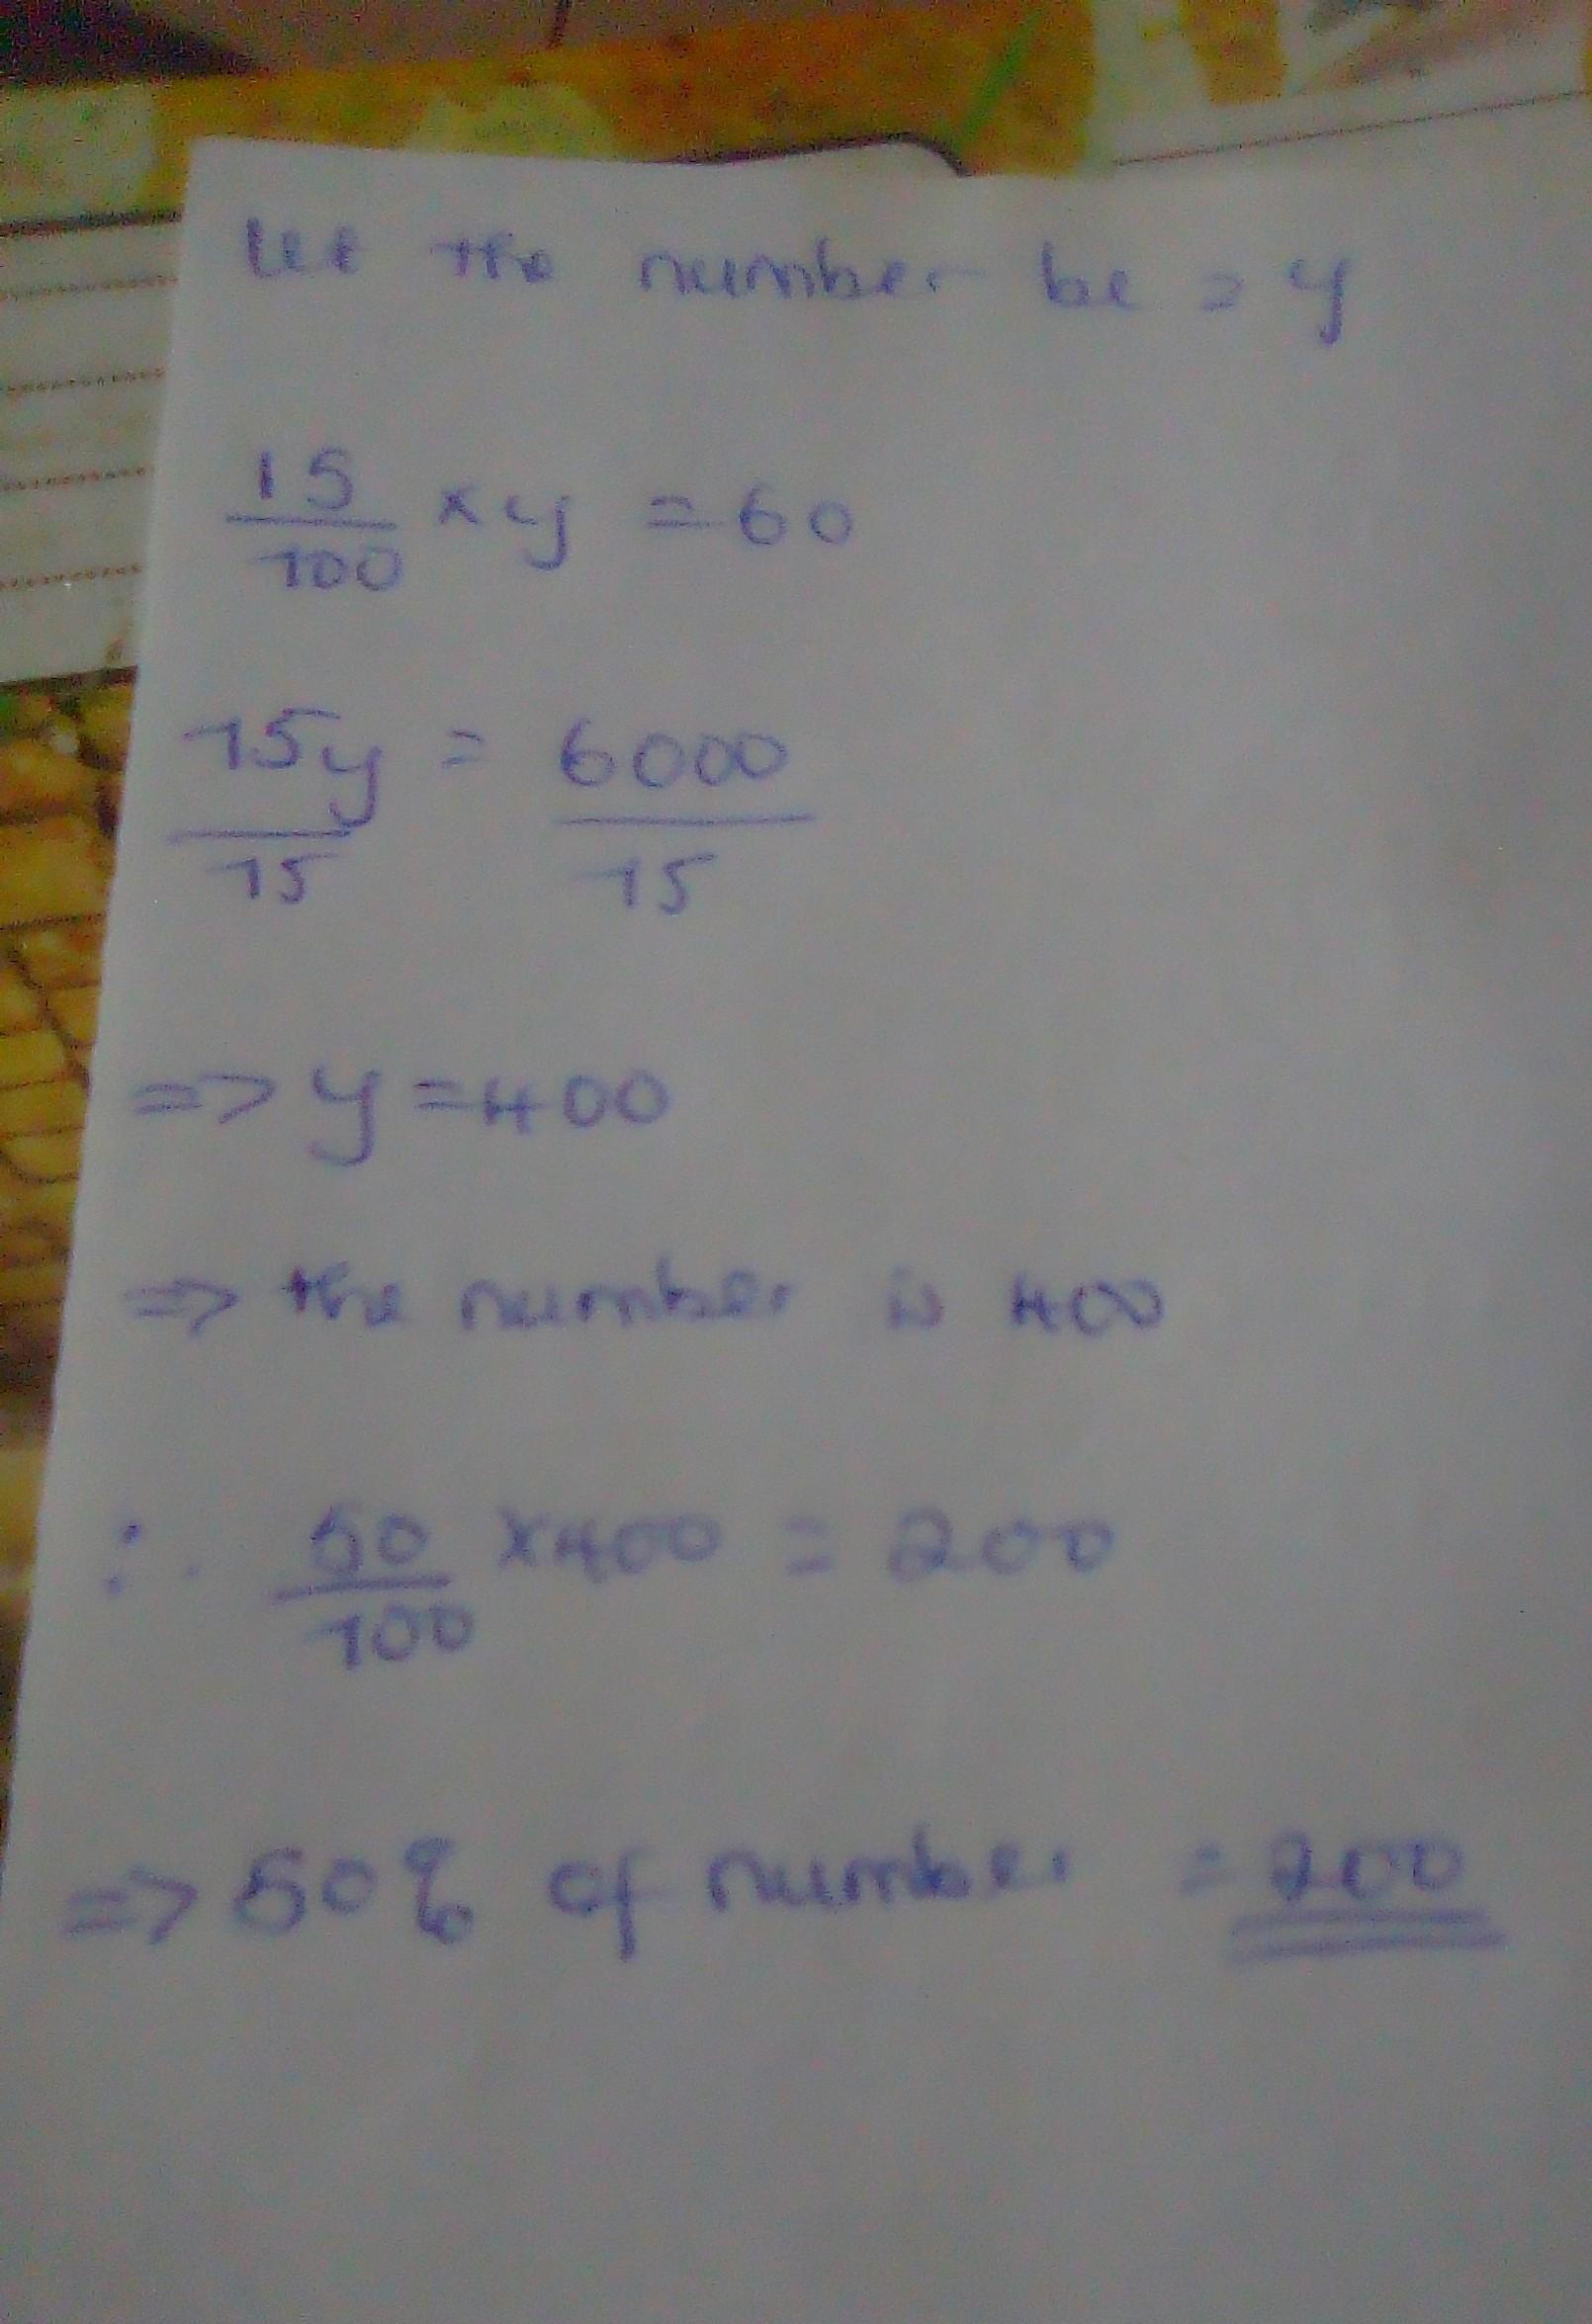 Let the number be = y
15/100 × y = 60
15y/15 = 6000/15
=> y = 400
=> the number is 400
∴ 50/100 × 400 = 200
=> 50% of number = 200